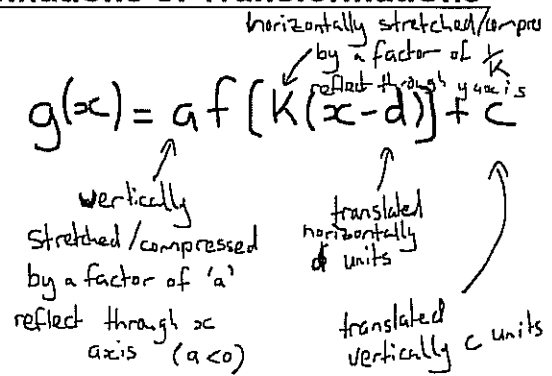 horizontally stretched/compre
by a factor of 1/K
reflect through y axis
g(x) = a f [K(x-d)] + c
vertically
stretched/compressed
by a factor of 'a'
reflect through x
axis (a<0)
translated
horizontally
d units
translated
vertically c units